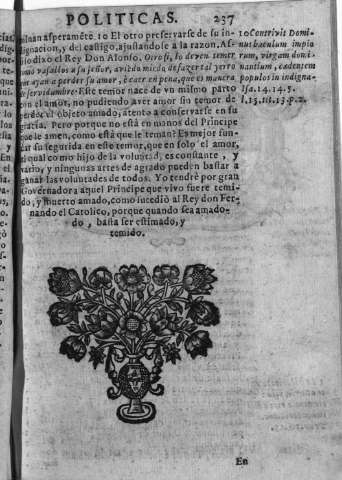 POLITICAS. 237
minan asperamẽte. 10 El otro preservarse de su in-
dignacion, y del castigo, ajustandose a la razon, As-
si lo dixo el Rey Don Alonso. Otrosi, lo deven temer
como vasallos a su señor, aviẽdo miedo de fazer tal yerro
que ayan a perder su amor, è caer en pena, que es manera
de servidumbre. Este temor nace de vn mismo parto
con el amor, no pudiendo aver amor sin temor de
perder el objeto amado, atento a conservarse en su
gracia. Pero porque no està en manos del Principe
que le amen, como està que le teman: Es mejor fun-
dar su seguridad en este temor, que en solo el amor,
el qual como hijo de la voluntad, es constante, y
vario, y ningunas artes de agrado pueden bastar a
ganar las voluntades de todos. Yo tendrè por gran
Governador a aquel Principe que vivo fuere temi-
do, y muerto amado, como sucediò al Rey don Fer-
nando el Catolico, porque quando sea amado-
do, basta ser estimado, y
temido.
10 Contrivit Domi-
nus baculum impio
rum, virgam domi-
nantium, cadentem
populos in indigna.
Isa. 14. 14. 5.
l. 15. tit. 13. p. 2.
En